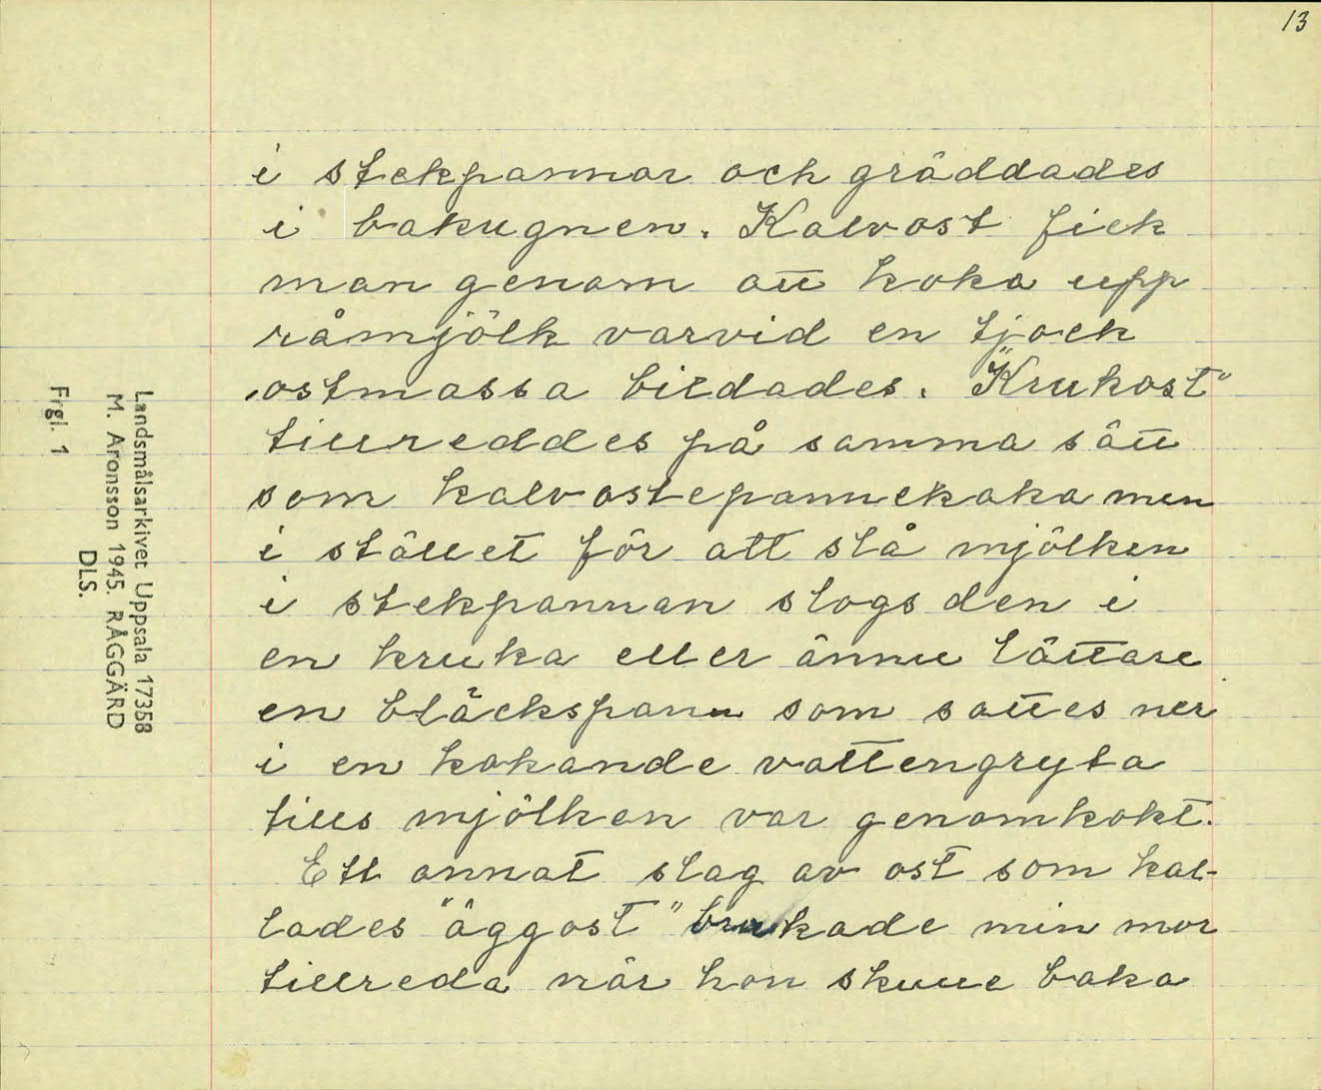 13
i stekpannor och gräddades
i bakugnen. Kalvost fick
man genom att koka upp
råmjölk varvid en tjock
ostmassa bildades. "Krukost"
tillreddes på samma sätt
som kalvostepannekaka men
i stället för att slå mjölken
i stekpannan slogs den i
en kruka eller ännu lättare
en bläckspann som sattes ner
i en kokande vattengryta
tills mjölken var genomkokt.
Ett annat slag av ost som kal-
lades "äggost" brukade min mor
tillreda när hon skulle baka
Landsmålsarkivet Uppsala 17358
M. Aronsson 1945. RÅGGÄRD
DLS.
Frgl. 1